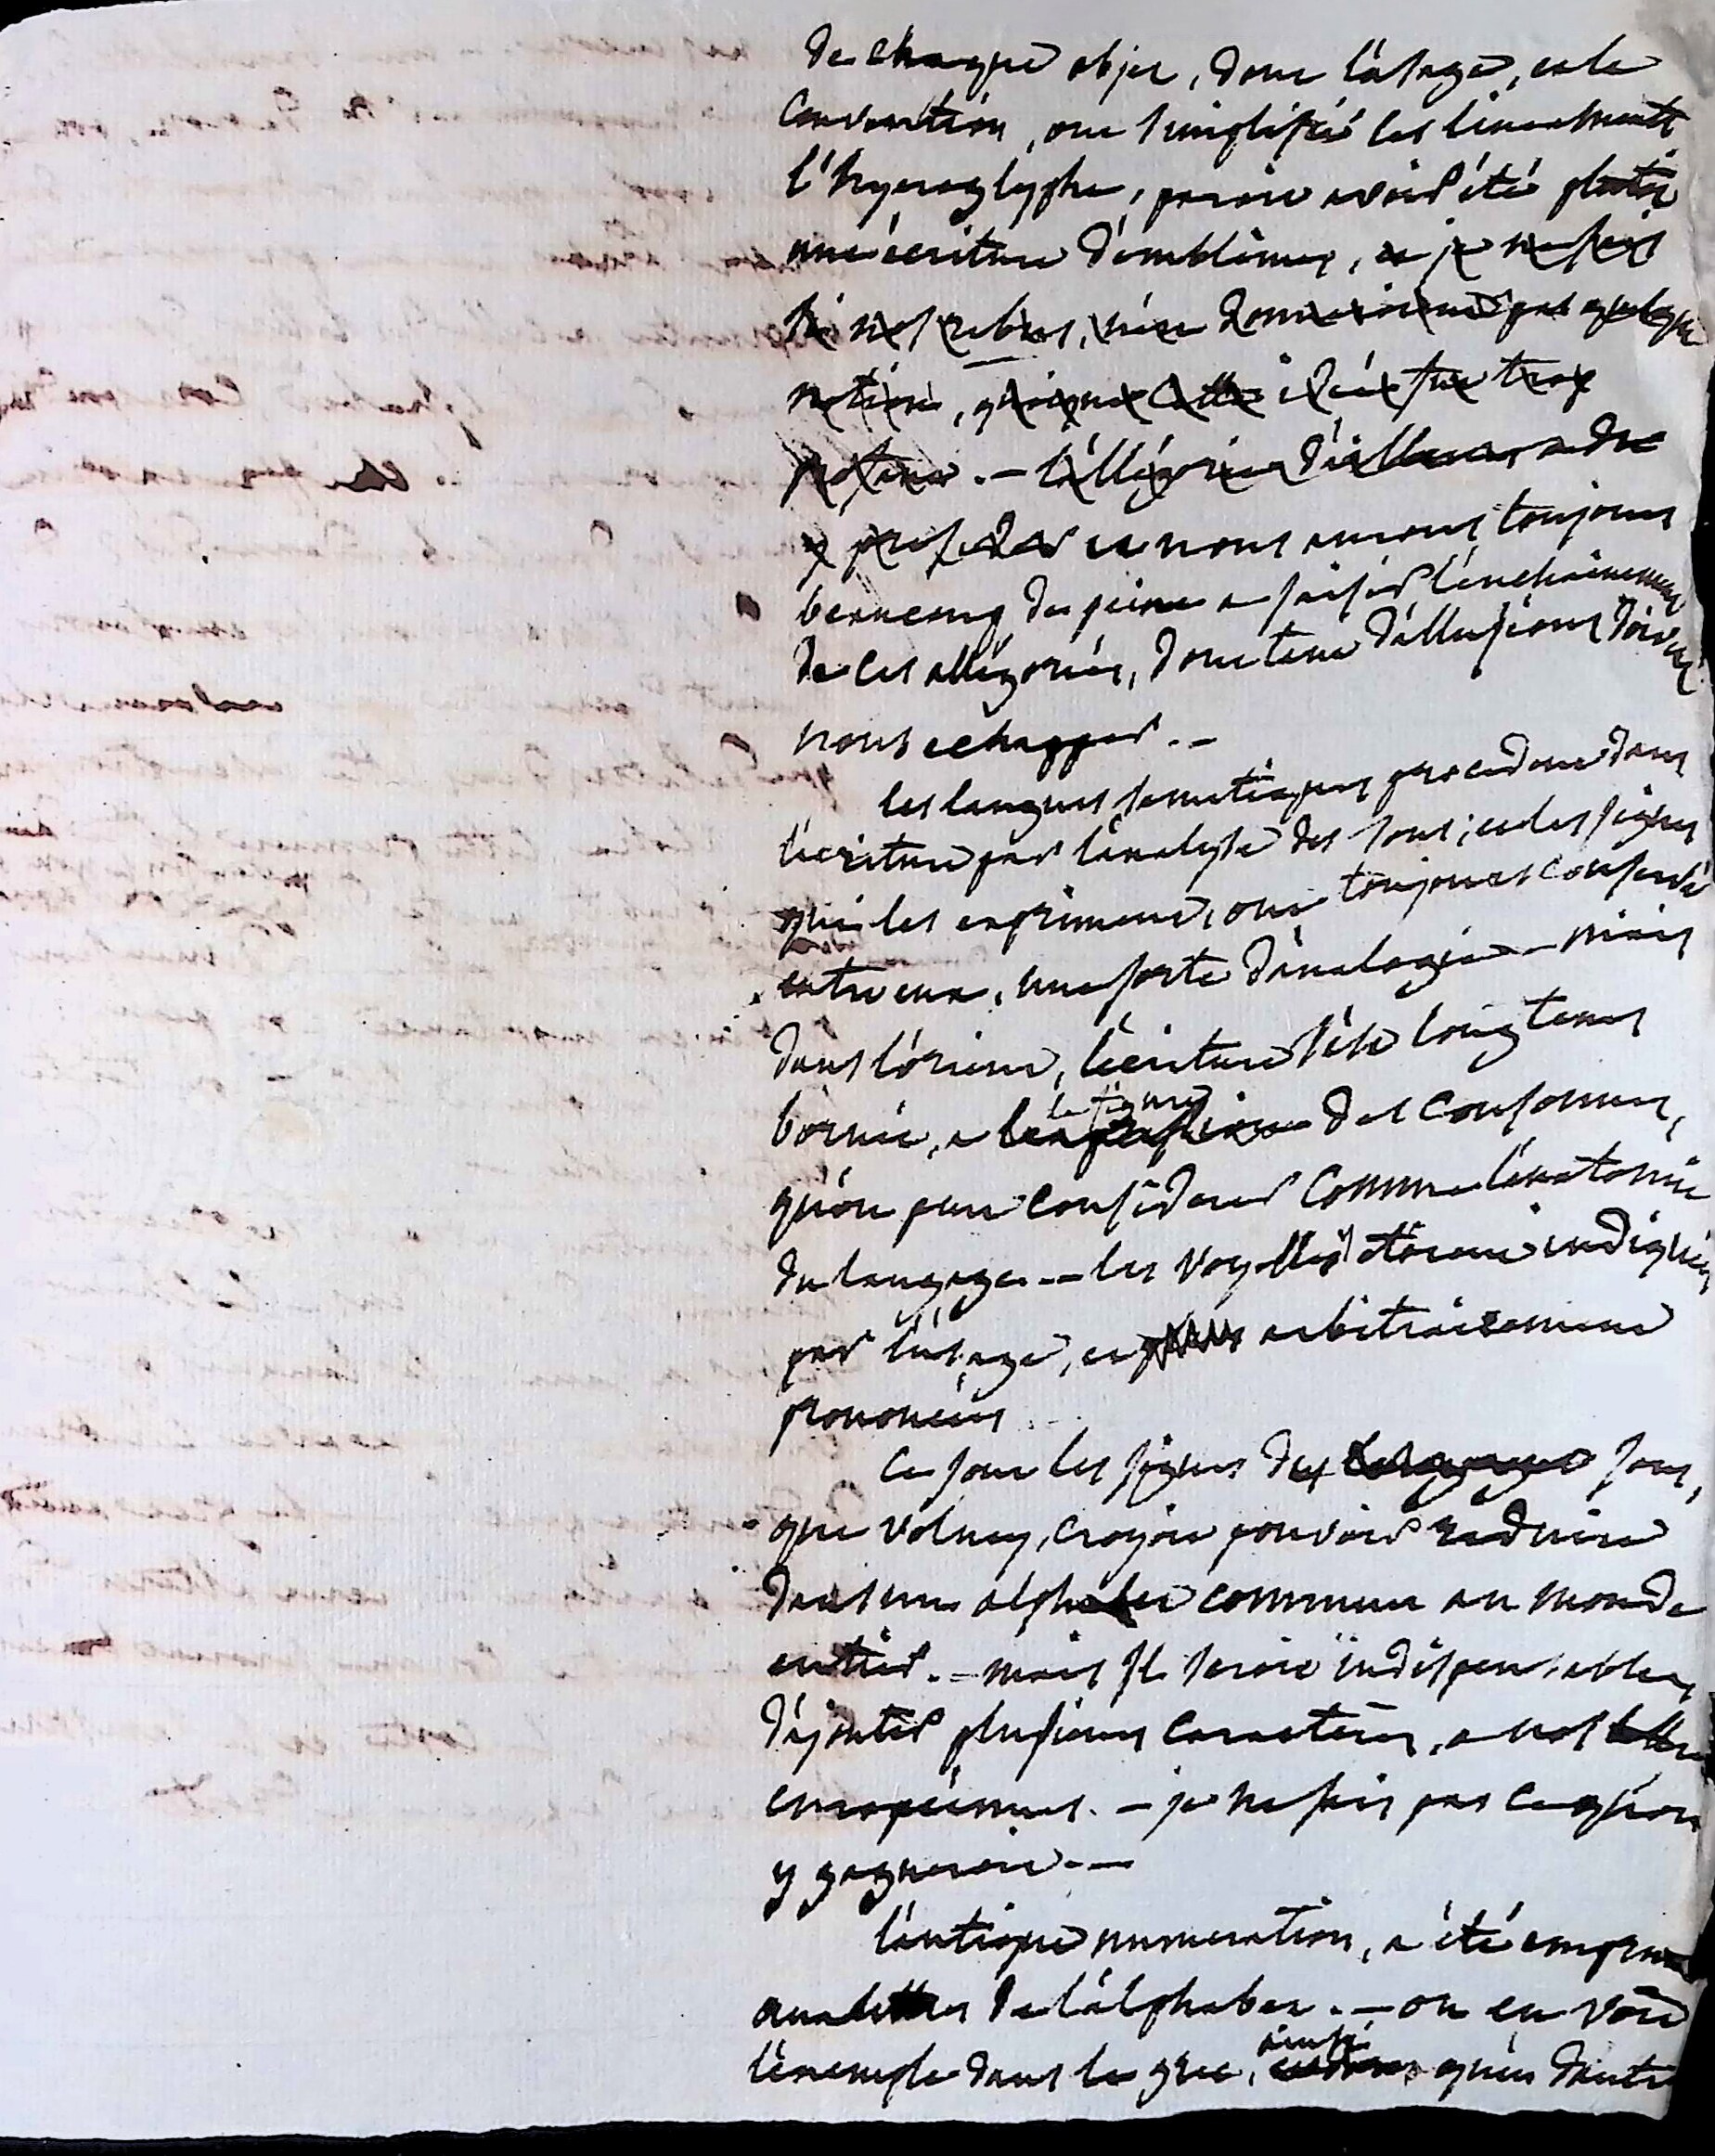 de chaque objet, dont l'usage, et la
convention, ont simplifié les lineaments
l'hyeroglyphe, paroit avoir été plutôt
une écriture d'emblêmes, et je ne sais
si nos rebus, n'en donneroient pas quelque
notion, quoique cette idée fut trop
profane. - l'allégorie d'ailleurs, a du
y présider et nous aurons toujours
beaucoup de peine a saisir l'enchainement
de ces allégories, dont tant d'allusions doivent
nous echapper. -
les langues semitiques procedent dans
l'écriture par l'analyse des sons; et les signes
qui les expriment, ont toujours conservé
entre eux, une sorte d'analogie - mais
dans l'orient, l'écriture s'est longtems
bornée, a la figure l'expression des consonnes,
qu'on peut considerer comme l'anatomie
du langage. - les voyelles étoient indiquées
par l'usage, et arbitrairement
prononcées.
ce sont les signes des langages sons,
que volney, croyoit pouvoir reduire
dans un alphabet commun au monde
entier. - mais il seroit indispensable
d'ajouter plusieurs caracteres, a nos lettres
européennes. - je ne sais pas ce qu'on
y gagneroit. -
l'antique numeration, a été emprun
aux lettres de l'alphabet. - on en voit
l'exemple dans le grec, ainsi qu'en d'autre